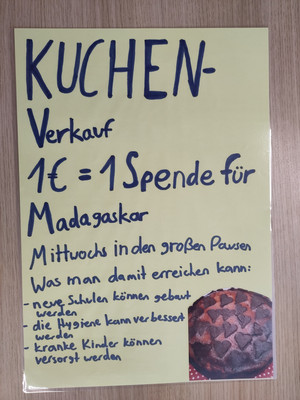 KUCHEN-
Verkauf
1€ = 1 Spende für
Madagaskar
Mittwochs in den großen Pausen
Was man damit erreichen kann:
- neue Schulen können gebaut
werden
- die Hygiene kann verbessert
werden
- kranke Kinder können
versorgt werden